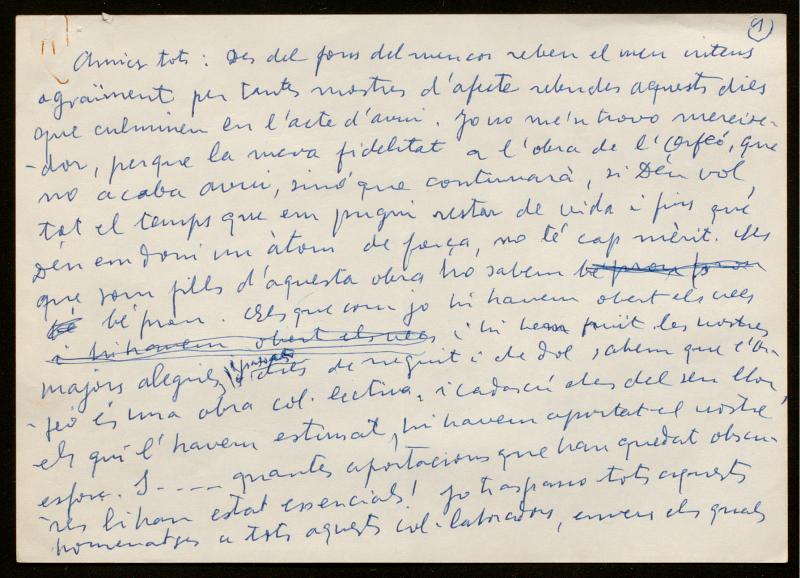 1
Amics tots: Des del fons del meu cos reben el meu intens
agraïment per tantes mostres d'afecte rebudes aquests dies
que culminen en l'acte d'avui. Jo no me'n trovo mereixe-
-dor, perque la meva fidelitat a l'obra de l'Orfeó, que
no acaba avui, sinó que continuarà, si Déu vol,
tot el temps que em pugui restar de vida i fins que
Déu em doni un àtom de força, no té cap mèrit. Els
que som fills d'aquesta obra ho sabem be prou
be bé prou. Els que com jo hi havem obert els ulls
i hi havem obert els ulls i hi hem fruit les nostres
majors alegries, i passat dies de neguit i de dol, sabem que l'Or-
-feó és una obra col·lectiva, i cadascú des del seu lloc,
els qui l'havem estimat, hi havem aportat el nostre
esforç. I ---- quantes aportacions que han quedat obscu-
res li han estat essencials! Jo traspasso tots aquests
homenatges a tots aquests col·laboradors, envers els quals